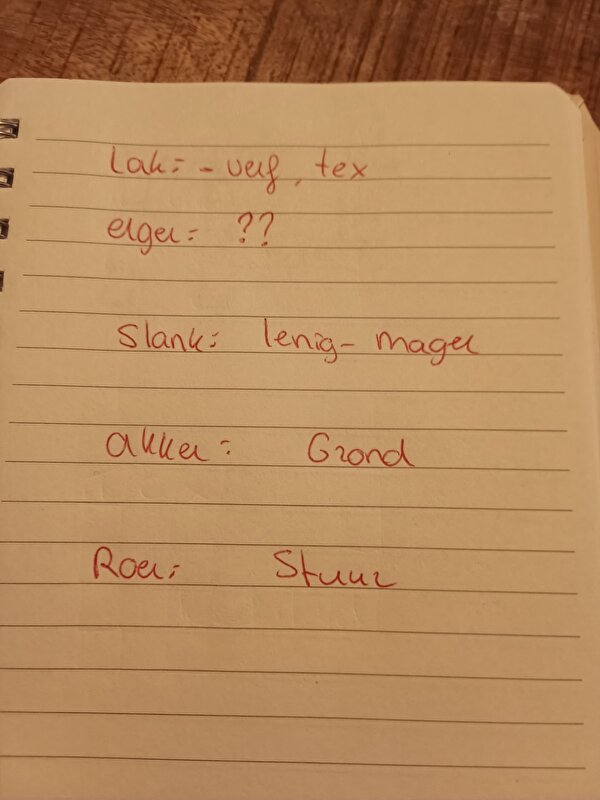 Lak: - verf, tex
erger: ??
Slank: lenig - mager
akker: Grond
Roer: Stuur